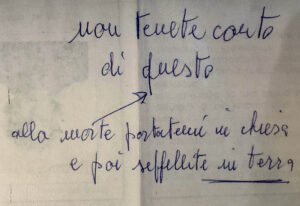 non tenete conto
di questo
alla morte portatemi in chiesa
e poi seffellite in terra